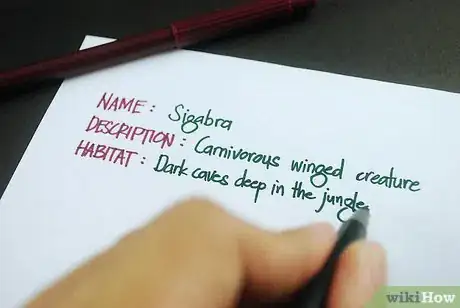 NAME: Sigabra
DESCRIPTION: Carnivorous winged creature
HABITAT: Dark caves deep in the jungle
wikiHow